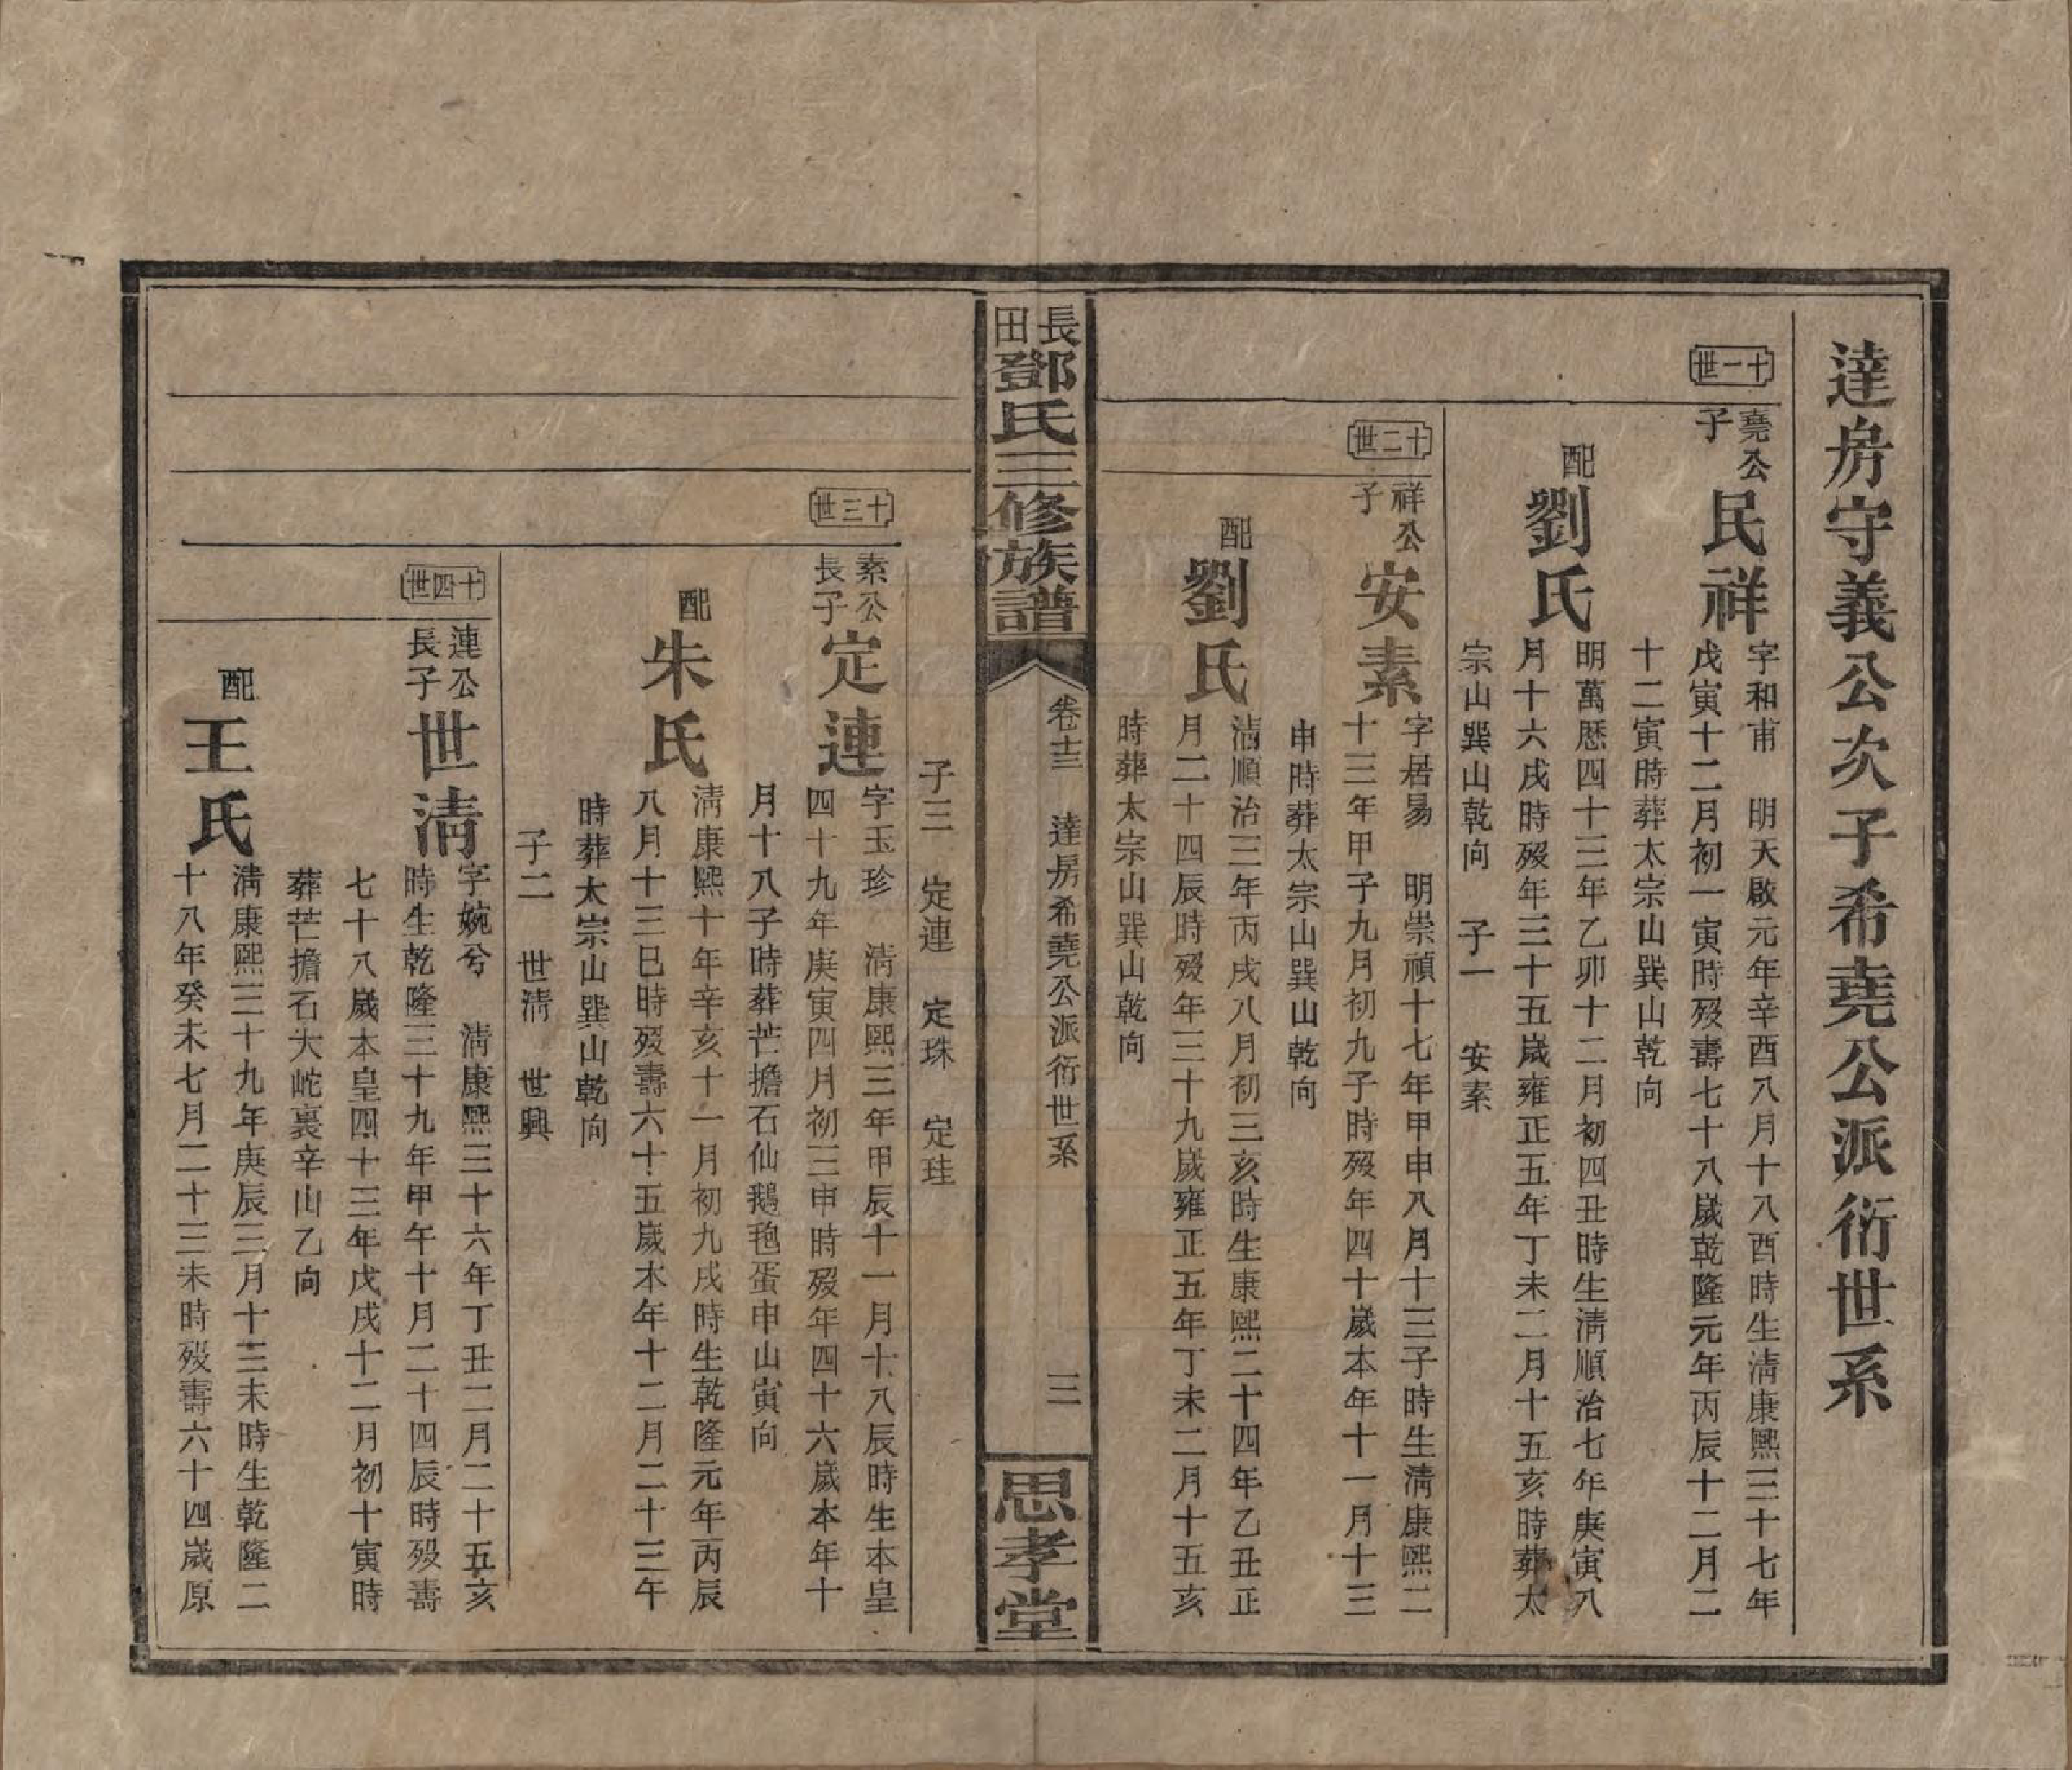 達房守義公次子希堯公派衍世系
十一世
堯公
子
民祥
字和甫 明天啟元年辛酉八月十八酉時生清康熙三十七年
戊寅十二月初一寅時殁壽七十八歲乾隆元年丙辰十二月二
十二寅時葬太宗山巽山乾向
配
劉氏
明萬歷四十三年乙卯十二月初四丑時生淸順治七年庚寅八
月十六戌時殁年三十五歲雍正五年丁未二月十五亥時葬太
宗山巽山乾向 子一 安素
十二世
祥公
子
安素
字居易 明崇禎十七年甲申八月十三子時生淸康熙二
十三年甲子九月初九子時殁年四十歲本年十一月十三
申時葬太宗山巽山乾向
配
劉氏
淸順治三年丙戌八月初三亥時生康熙二十四年乙丑正
月二十四辰時殁年三十九歲雍正五年丁未二月十五亥
時葬太宗山巽山乾向
長田鄧氏三修族譜
卷十三 達房希堯公派衍世系
三
思孝堂
子三 定連 定珠 定珪
十三世
素公
長子
定連
字玉珍 淸康熙三年甲辰十一月十八辰時生本皇
四十九年庚寅四月初三申時殁年四十六歲本年十
月十八子時葬芒擔石仙鵝菢蛋申山寅向
配
朱氏
淸康熙十年辛亥十一月初九戌時生乾隆元年丙辰
八月十三巳時殁壽六十五歲本年十二月二十三午
時葬太宗山巽山乾向
子二 世淸 世興
十四世
連公
長子
世淸
字婉兮 淸康熙三十六年丁丑二月二十五亥
時生乾隆三十九年甲午十月二十四辰時殁壽
七十八歲本皇四十三年戊戌十二月初十寅時
葬芒擔石大岮裏辛山乙向
配
王氏
淸康熙三十九年庚辰三月十三未時生乾隆二
十八年癸未七月二十三未時殁壽六十四歲原